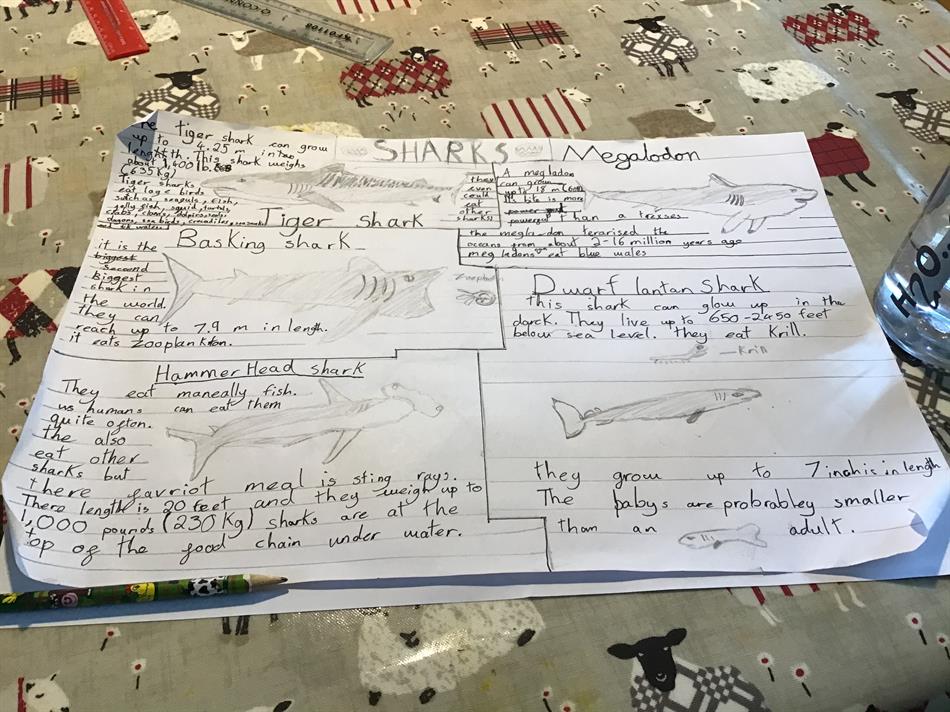 SHARKS
The tiger shark can grow
up to 4.25 m in too
length. This shark weighs
about 1,400 lb.
(635 kg)
Tiger sharks
eat large birds
such as seagulls, fish,
jelly fish, squid, turtuls,
crabs, clams,
sea birds,
Tiger shark
Megalodon
A megladon
can grow
up to 18 m (60ft)
its bite is more
power
powerful than a trexses
they
even
could
eat
other
sharks
the megla-don terarised the
oceans from about 2-16 million years ago
megledons eat blue wales
Basking shark
it is the
biggest
second
biggest
shark in
the world.
they can
reach up to 7.9 m in length.
it eats zooplankton.
Dwarf lantan shark
This shark can glow up in the
darck. They live up to 650-2450 feet
below sea level. they eat Krill.
— Krill
they grow up to 7 inahis in length
The babys are probrabley smaller
than an adult.
HammerHead shark
They eat maneally fish.
us humans can eat them
quite often.
The also
eat other
sharks but
there favriot meal is sting rays.
There length is 20 feet and they weigh up to
1,000 pounds (230 kg) sharks are at the
top of the food chain under water.
H2O